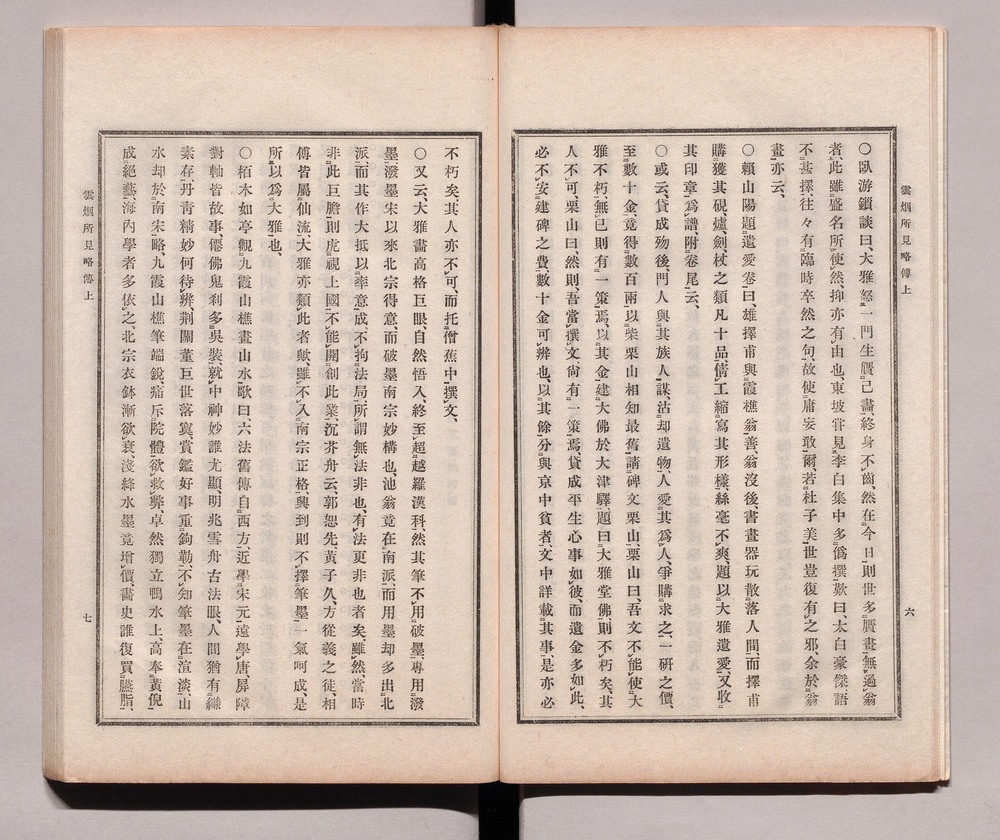 雲烟所見略傳上
六
○臥游鎖談曰、大雅怒一門生贋己畫、終身不齒、然在今日則世多贋畫、無過翁
者、此雖盛名所使然、抑亦有由也、東坡甞見李白集中多僞撰、歎曰、太白豪傑語
不甚擇、往々有臨時卒然之句、故使庸妄敢爾、若杜子美、世豈復有之邪、余於翁
畫亦云、
○賴山陽題遺愛卷曰、雄擇甫與霞樵翁善、翁沒後、書畫器玩散落人間、而擇甫
購獲其硯、爐、劍、杖之類凡十品、倩工縮寫其形樣、絲毫不爽、題以大雅遺愛、又收
其印章、爲譜附卷尾云、
○或云、貸成歿後、門人與其族人謀、沽却遺物、人愛其爲人、爭購求之、一硏之價、
至數十金、竟得數百兩、以柴栗山相知最舊、請碑文栗山、栗山曰、吾文不能使大
雅不朽、無已則有一策焉、以其金建大佛於大津驛、題曰大雅堂佛、則不朽矣、其
人不可、栗山曰、然則吾當撰文、尙有一策焉、貸成平生心事如彼、而遺金多如此、
必不安、建碑之費、數十金可辨也、以其餘分與京中貧者、文中詳載其事、是亦必
不朽矣、其人亦不可、而托僧蕉中撰文、
○又云、大雅畫高格巨眼自然悟入、終至超越羅漢科、然其筆不用破墨、專用潑
墨、潑墨宋以來北宗得意、而破墨南宗妙構也、池翁竟在南派、而用墨却多出北
派、而其作大抵以率意成、不拘法局、所謂無法非也、有法更非也者矣、雖然、當時
非此巨膽、則虎視上國、不能開創此業、沉芥舟云、郭恕先黃子久、方從義之徒、相
傳皆屬仙流、大雅亦類此者歟、雖不入南宗正格、興到則不擇筆墨、一氣呵成、是
所以爲大雅也、
○柏木如亭觀九霞山樵畫山水歌曰、六法舊傳自西方、近學宋元遠學唐、屏障
對軸皆故事、僊佛鬼刹多吳裝、就中神妙誰尤顯、明兆雪舟古法眼、人間猶有縑
素存、丹靑精妙何待辨、荆關董巨世落寞、賞鑑好事重鉤勒、不知筆墨在渲淡、山
水却於南宋略、九霞山樵筆端銳、痛斥院體欲救弊、卓然獨立鴨水上、高奉黃倪
成絕藝、海內學者多依之、北宗衣鉢漸欲衰、淺絳水墨竟增價、畫史誰復買臙脂、
雲烟所見略傳上
七